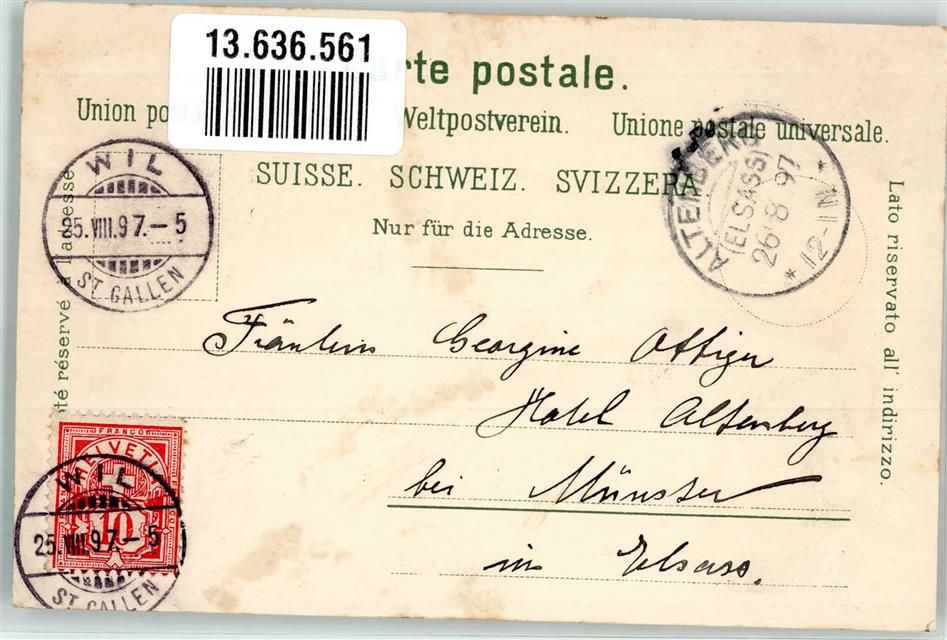 13.636.561
rte postale.
Union pos Weltpostverein. Unione postale universale.
SUISSE. SCHWEIZ. SVIZZERA
Nur für die Adresse.
té réservé à l'adresse.
Lato riservato all' indirizzo.
WIL
25.VIII.97.-5
ST. GALLEN
ALTENBERG
(ELSASS)
26 8 97
* 11-12 N *
Fräulein Georgine Ottiger
Hotel Altenberg
bei Münster
in Elsass.
FRANCO
HELVETIA
10
WIL
25.VIII.97.-5
ST. GALLEN